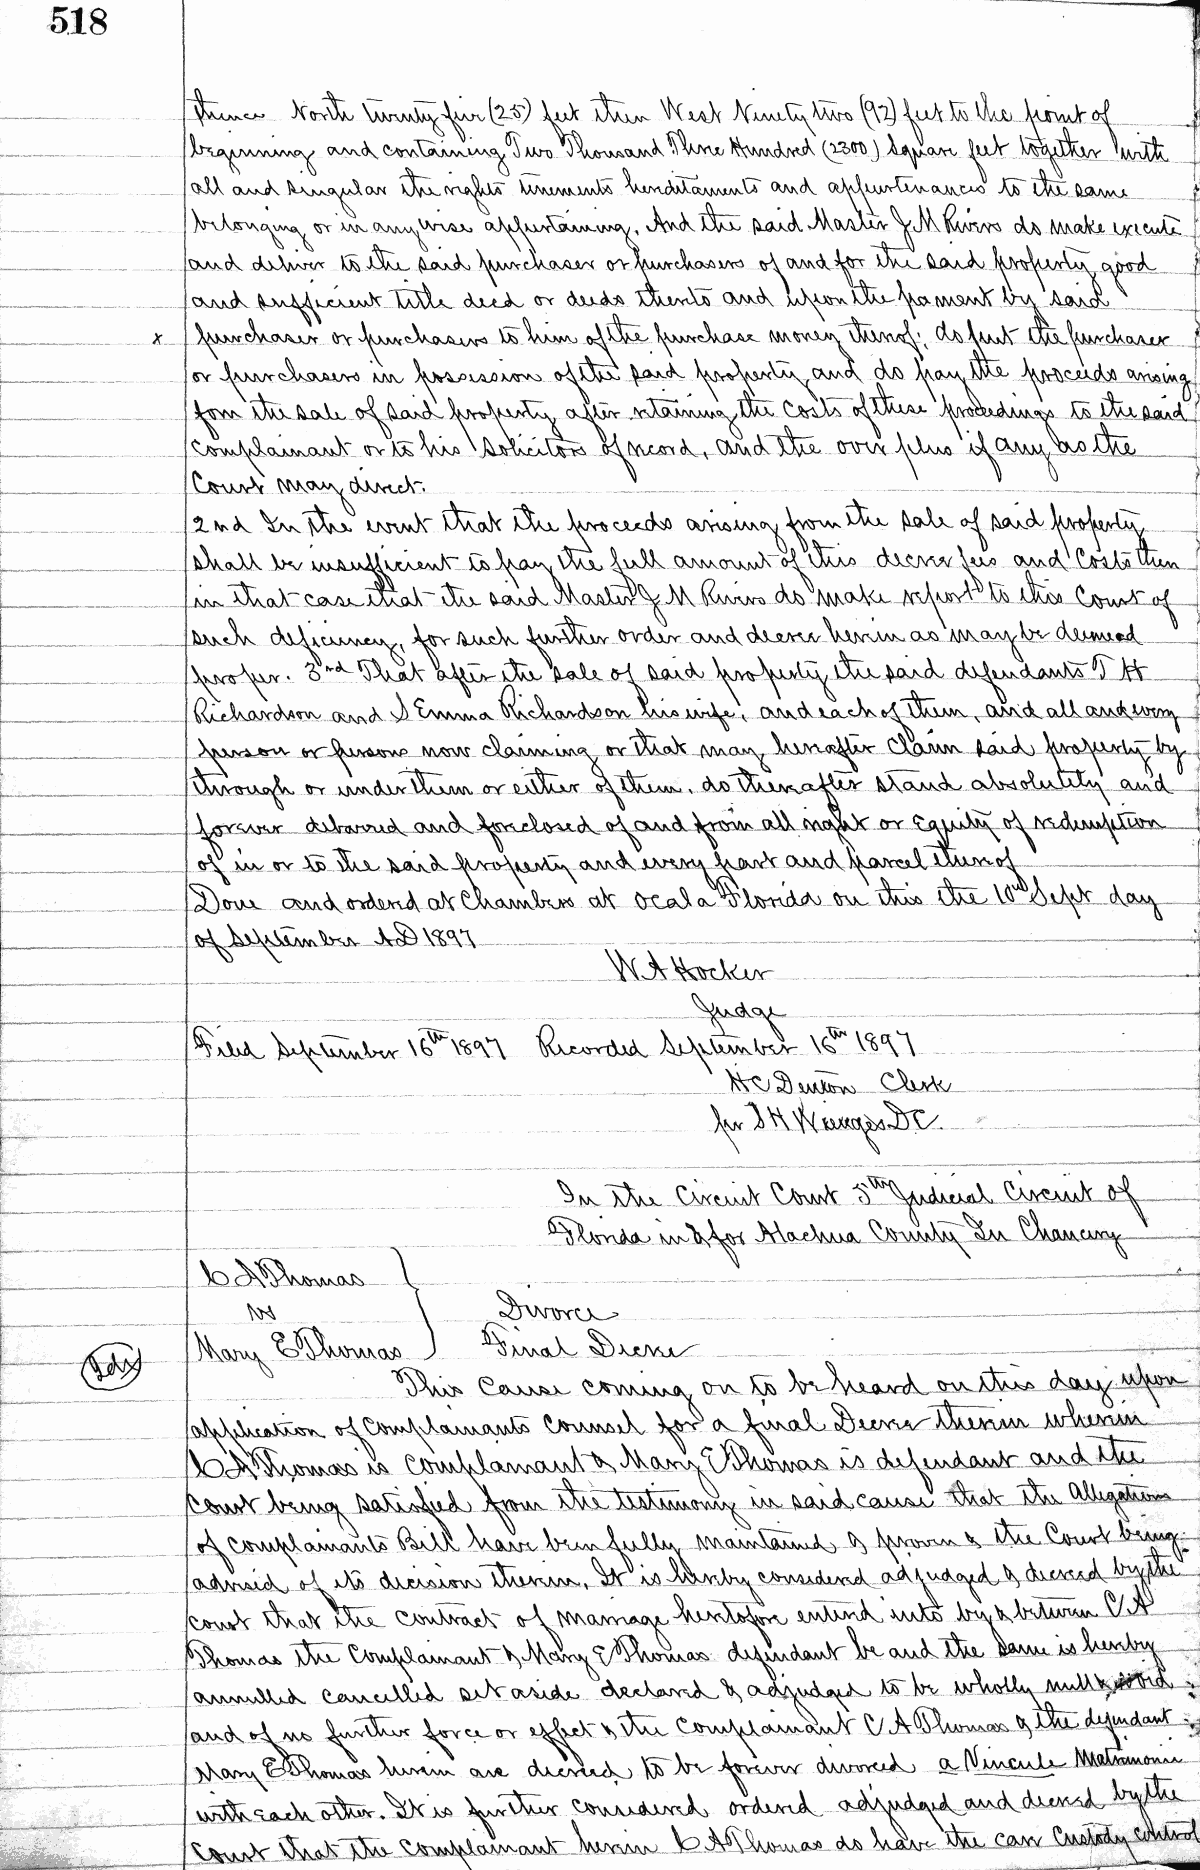 518
thence North twenty five (25) feet then West Ninety two (92) feet to the point of
beginning and containing Two Thousand Three Hundred (2300) Square feet together with
all and singular the rights tenements hereditaments and appurtenances to the same
belonging or in any wise appertaining. And the said Master J M Rivers do make execute
and deliver to the said purchaser or purchasers of and for the said property good
and sufficient title deed or deeds thereto and upon the pament by said
x purchaser or purchasers to him of the purchase money thereof; do put the purchaser
or purchasers in possession of the said property and do pay the proceeds arising
from the sale of said property after retaining the costs of these proceedings to the said
complainant or to his solicitors of record, and the over plus if any as the
Court may direct.
2nd In the event that the proceeds arising from the sale of said property
shall be insufficient to pay the full amount of this decree fees and Costs then
in that case that the said Master J M Rivers do make report to this Court of
such deficiency, for such further order and decree herein as may be deemed
proper. 3rd That after the sale of said property the said defendants T H
Richardson and S Emma Richardson his wife, and each of them, and all and every
person or persons now claiming or that may hereafter Claim said property by
through or under them or either of them, do thereafter stand absolutely and
forever debarred and foreclosed of and from all right or Equity of redemption
of in or to the said property and every part and parcel thereof
Done and ordered at Chambers at Ocala Florida on this the 10th Sept day
of September AD 1897
W A Hocker
Judge
Filed September 16th 1897 Recorded September 16th 1897
H C Denton Clerk
per S H Wienges DC.
In the Circuit Court 5th Judicial Circuit of
Florida in & for Alachua County In Chancery
C A Thomas
vs
Divorce
Mary E Thomas
Final Decree
This Cause coming on to be heard on this day upon
application of Complainants Counsel for a final Decree therein wherein
C A Thomas is Complainant & Mary E Thomas is defendant and the
Court being satisfied from the testimony in said cause that the Allegations
of complainants Bill have been fully maintained & proven & the Court being
advised of its decision therein, It is hereby considered adjudged & decreed by the
court that the contract of marriage heretofore entered into by & between C A
Thomas the Complainant & Mary E Thomas defendant be and the same is hereby
annulled cancelled set aside declared & adjudged to be wholly null & void
and of no further force or effect & the Complainant C A Thomas & the defendant
Mary E Thomas herein are decreed to be forever divorced a Vincule Matrimonie
with each other. It is further considered ordered adjudged and decreed by the
Court that the Complainant herein C A Thomas do have the care Custody control